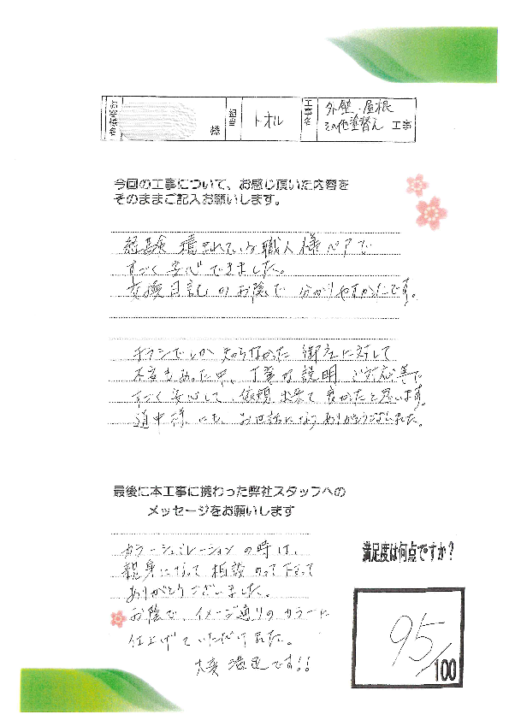 お客様名 様 担当 トオル 工事名 外壁・屋根
その他塗替え 工事
今回の工事について、お感じ頂いた内容を
そのままご記入お願いします。
経験 積まれている職人様ペアで
すごく安心できました。
交換日記のお陰で 分かりやすかったです。
チラシでしか知らなかった 御社に対して
不安もあった中、丁寧な説明 ご対応等に
すごく安心して、依頼出来て良かったと思います。
道中様にも、お世話になりありがとうございました。
最後に本工事に携わった弊社スタッフへの
メッセージをお願いします
カラーシュミレーションの時は、
親身になって相談のって下さって
ありがとうございました。
お陰で、イメージ通りのカラーに
仕上げていただけました。
大変満足です!!
満足度は何点ですか?
95/100